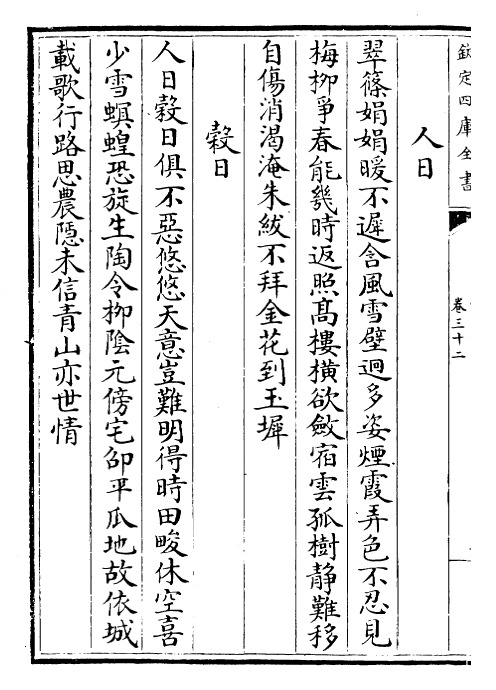 欽定四庫全書
卷三十二
人日
翠篠娟娟暖不遲含風雪壁迥多姿煙霞弄色不忍見
梅柳爭春能幾時返照髙樓橫欲斂宿雲孤樹静難移
自傷消渴淹朱紱不拜金花到玉墀
糓日
人日糓日俱不惡悠悠天意豈難明得時田畯休空喜
少雪螟蝗恐旋生陶令栁陰元傍宅邵平瓜地故依城
載歌行路思農隠未信青山亦世情